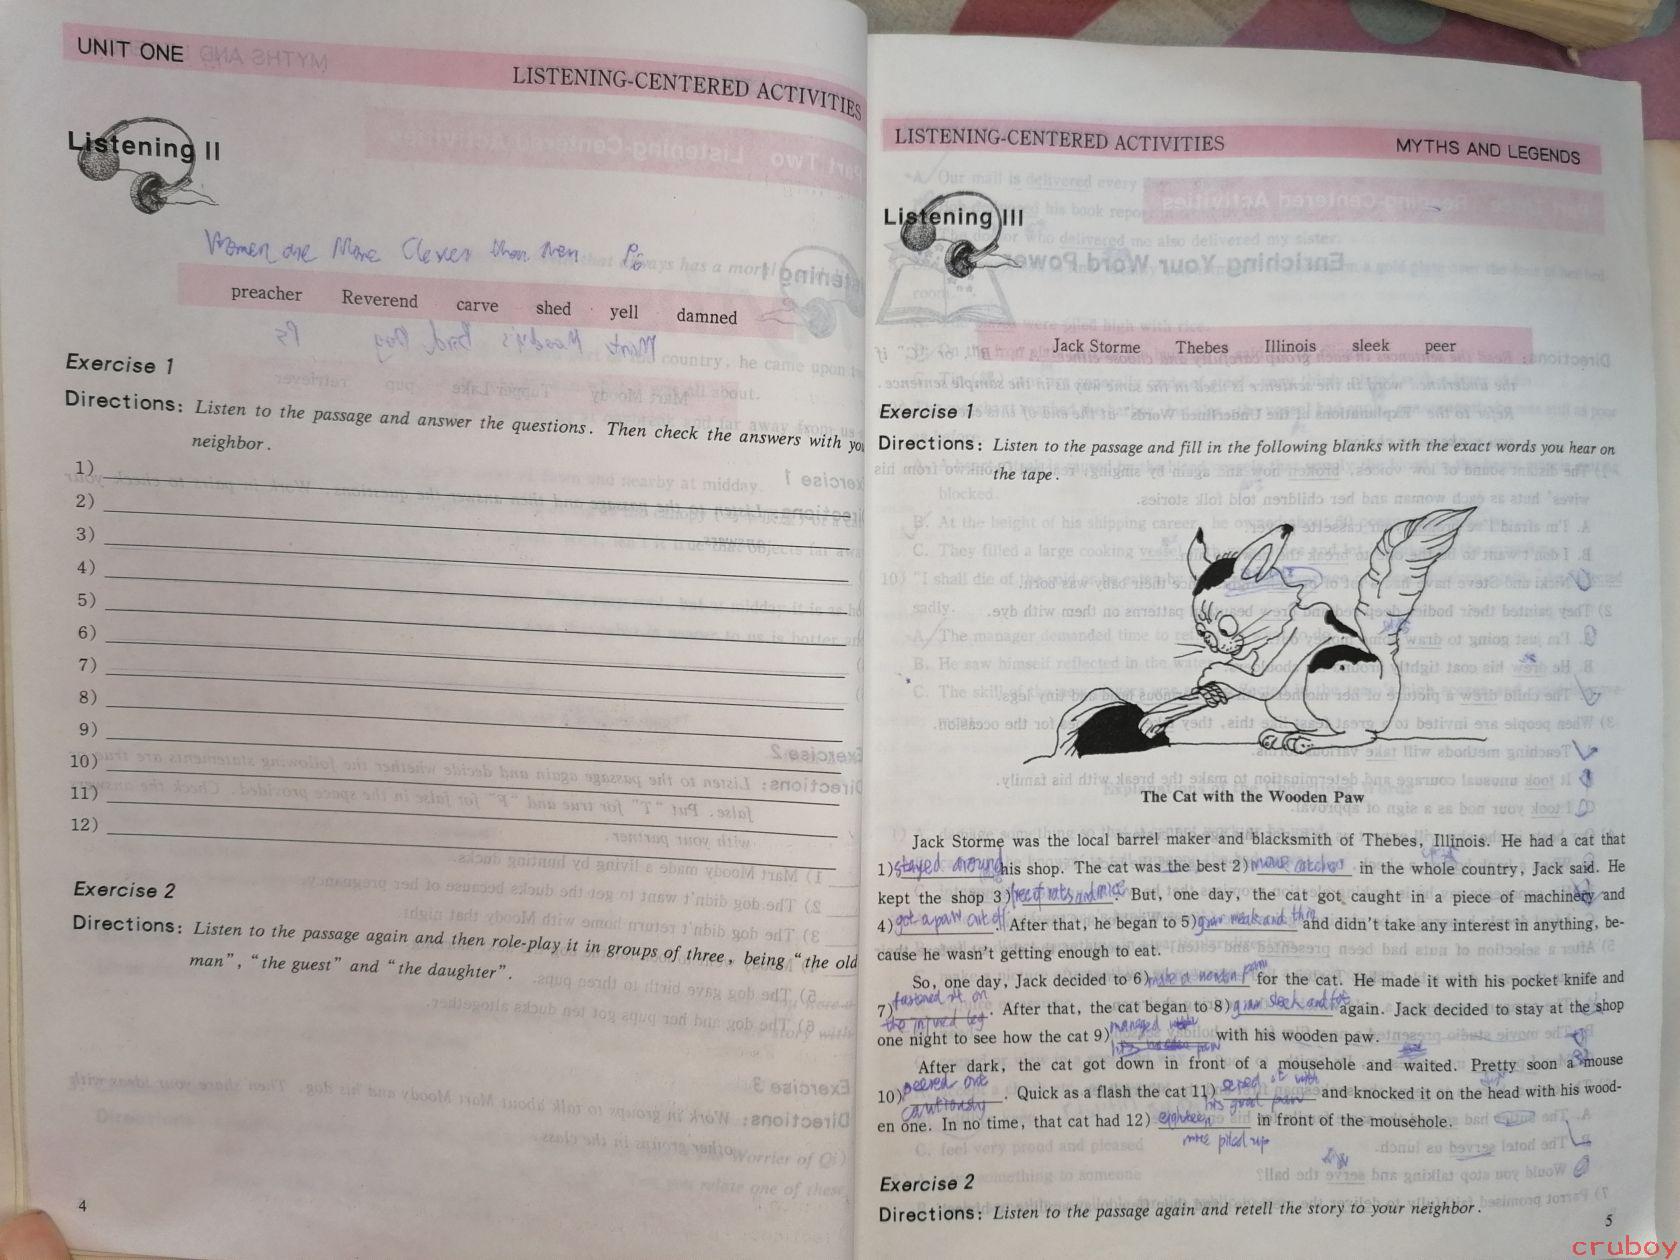 UNIT ONE
LISTENING-CENTERED ACTIVITIES
Listening II
Women are More Clever than Men P6
preacher Reverend carve shed yell damned
Exercise 1
Directions: Listen to the passage and answer the questions. Then check the answers with you
neighbor.
1)
2)
3)
4)
5)
6)
7)
8)
9)
10)
11)
12)
Exercise 2
Directions: Listen to the passage again and then role-play it in groups of three, being "the old
man", "the guest" and "the daughter".
4
LISTENING-CENTERED ACTIVITIES
MYTHS AND LEGENDS
Listening III
Jack Storme Thebes Illinois sleek peer
Exercise 1
Directions: Listen to the passage and fill in the following blanks with the exact words you hear on
the tape.
The Cat with the Wooden Paw
Jack Storme was the local barrel maker and blacksmith of Thebes, Illinois. He had a cat that
1) stayed around his shop. The cat was the best 2) mouse catcher in the whole country, Jack said. He
kept the shop 3) free of rats and mice. But, one day, the cat got caught in a piece of machinery and
4) got a paw cut off. After that, he began to 5) grow weak and thin and didn't take any interest in anything, be-
cause he wasn't getting enough to eat.
So, one day, Jack decided to 6) make a wooden paw for the cat. He made it with his pocket knife and
7) fastened it on the injured leg. After that, the cat began to 8) grow sleek and fat again. Jack decided to stay at the shop
one night to see how the cat 9) managed with his wooden paw.
After dark, the cat got down in front of a mousehole and waited. Pretty soon a mouse
10) peered out cautiously. Quick as a flash the cat 11) it with his good paw and knocked it on the head with his wood-
en one. In no time, that cat had 12) eighteen mice piled up in front of the mousehole.
Exercise 2
Directions: Listen to the passage again and retell the story to your neighbor.
5
cruboy